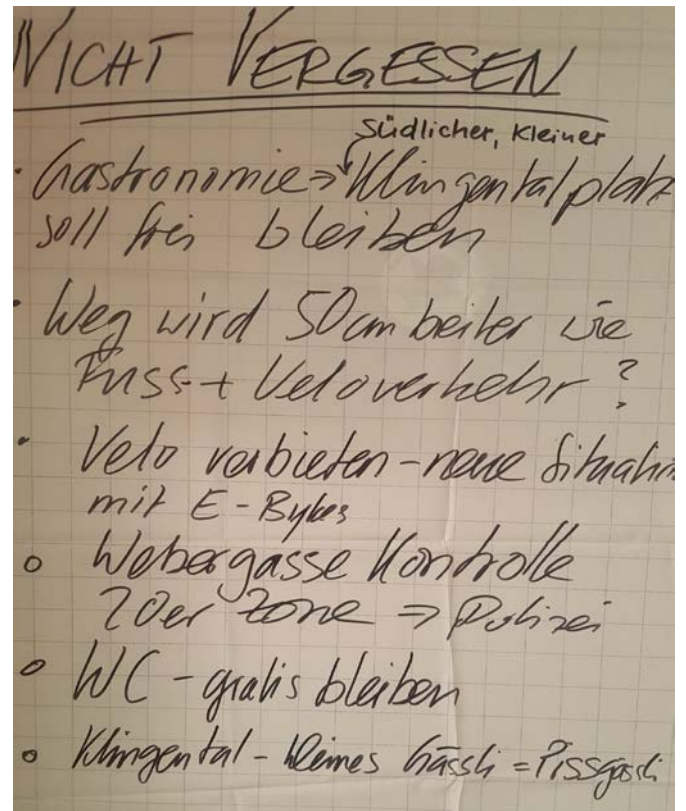 NICHT VERGESSEN
südlicher, kleiner
· Gastronomie => Klingentalplatz
soll frei bleiben
· Weg wird 50cm beiter wie
Fuss- + Veloverkehr ?
· Velo verbieten - neue Situation
mit E-Bykes
o Webergasse Kontrolle
20er Zone => Polizei
o WC - gratis bleiben
o Klingental - kleines Gässli = Pissgässli